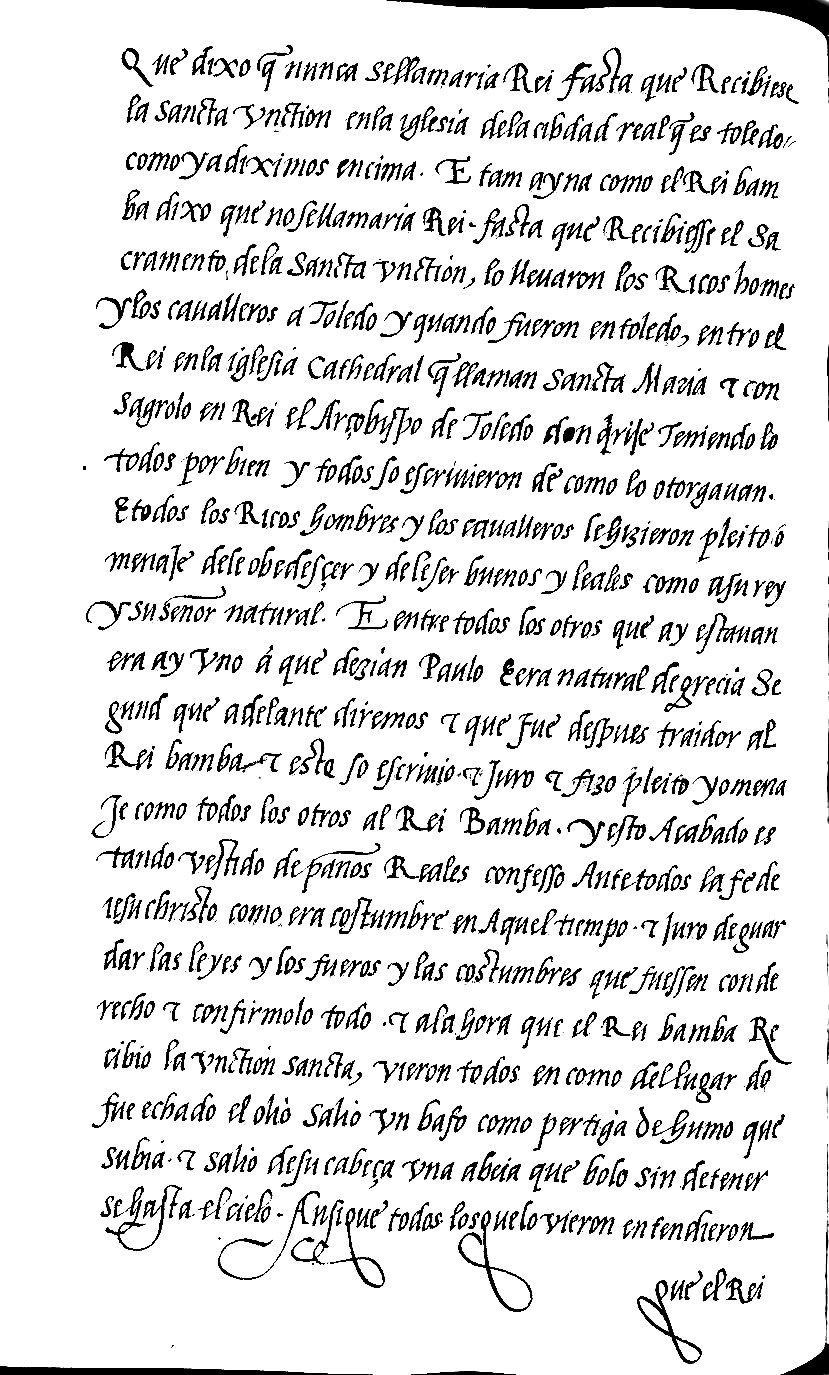 Que dixo q̃ nunca sellamaria Rei fasta que Recibiese
la sancta vnction enla iglesia delacibdad real q̃ es toledo
como ya diximos encima. E tam ayna como el Rei bam
ba dixo que nosellamaria Rei. fasta que Recibiesse el Sa
cramento dela Sancta vnction, lo lleuaron los Ricos homes
y los caualleros a Toledo y quando fueron en toledo, entro el
Rei enla iglesia Cathedral q̃ llaman Sancta Maria ⁊ con
Sagrolo en Rei el Arçobispo de Toledo don Teniendo lo
todos por bien y todos so escriuieron de como lo otorgauan.
E todos los Ricos hombres y los caualleros le hizieron pleito o
menaje dele obedesçer y de leser buenos y leales como asu rey
y su señor natural. E entre todos los otros que ay estauan
era ay vno á que dezian Paulo E era natural de grecia Se
gund que adelante diremos ⁊ que fue despues traidor al
Rei bamba ⁊ este so escriuio ⁊ Juro ⁊ fizo pleito y omena
Je como todos los otros al Rei Bamba. y esto Acabado es
tando vestido de paños Reales confesso Ante todos la fe de
iesu christo como era costumbre en Aquel tiempo. ⁊ Juro de guar
dar las leyes y los fueros y las costumbres que fuessen con de
recho ⁊ confirmolo todo. ⁊ ala hora que el Rei bamba Re
cibio la vnction sancta, vieron todos en como del lugar do
fue echado el olio salio vn bafo como pertiga de humo que
subia. ⁊ salio desu cabeça vna abeia que bolo sin detener
se hasta el cielo. Ansique todos los que lo vieron entendieron
que el Rei